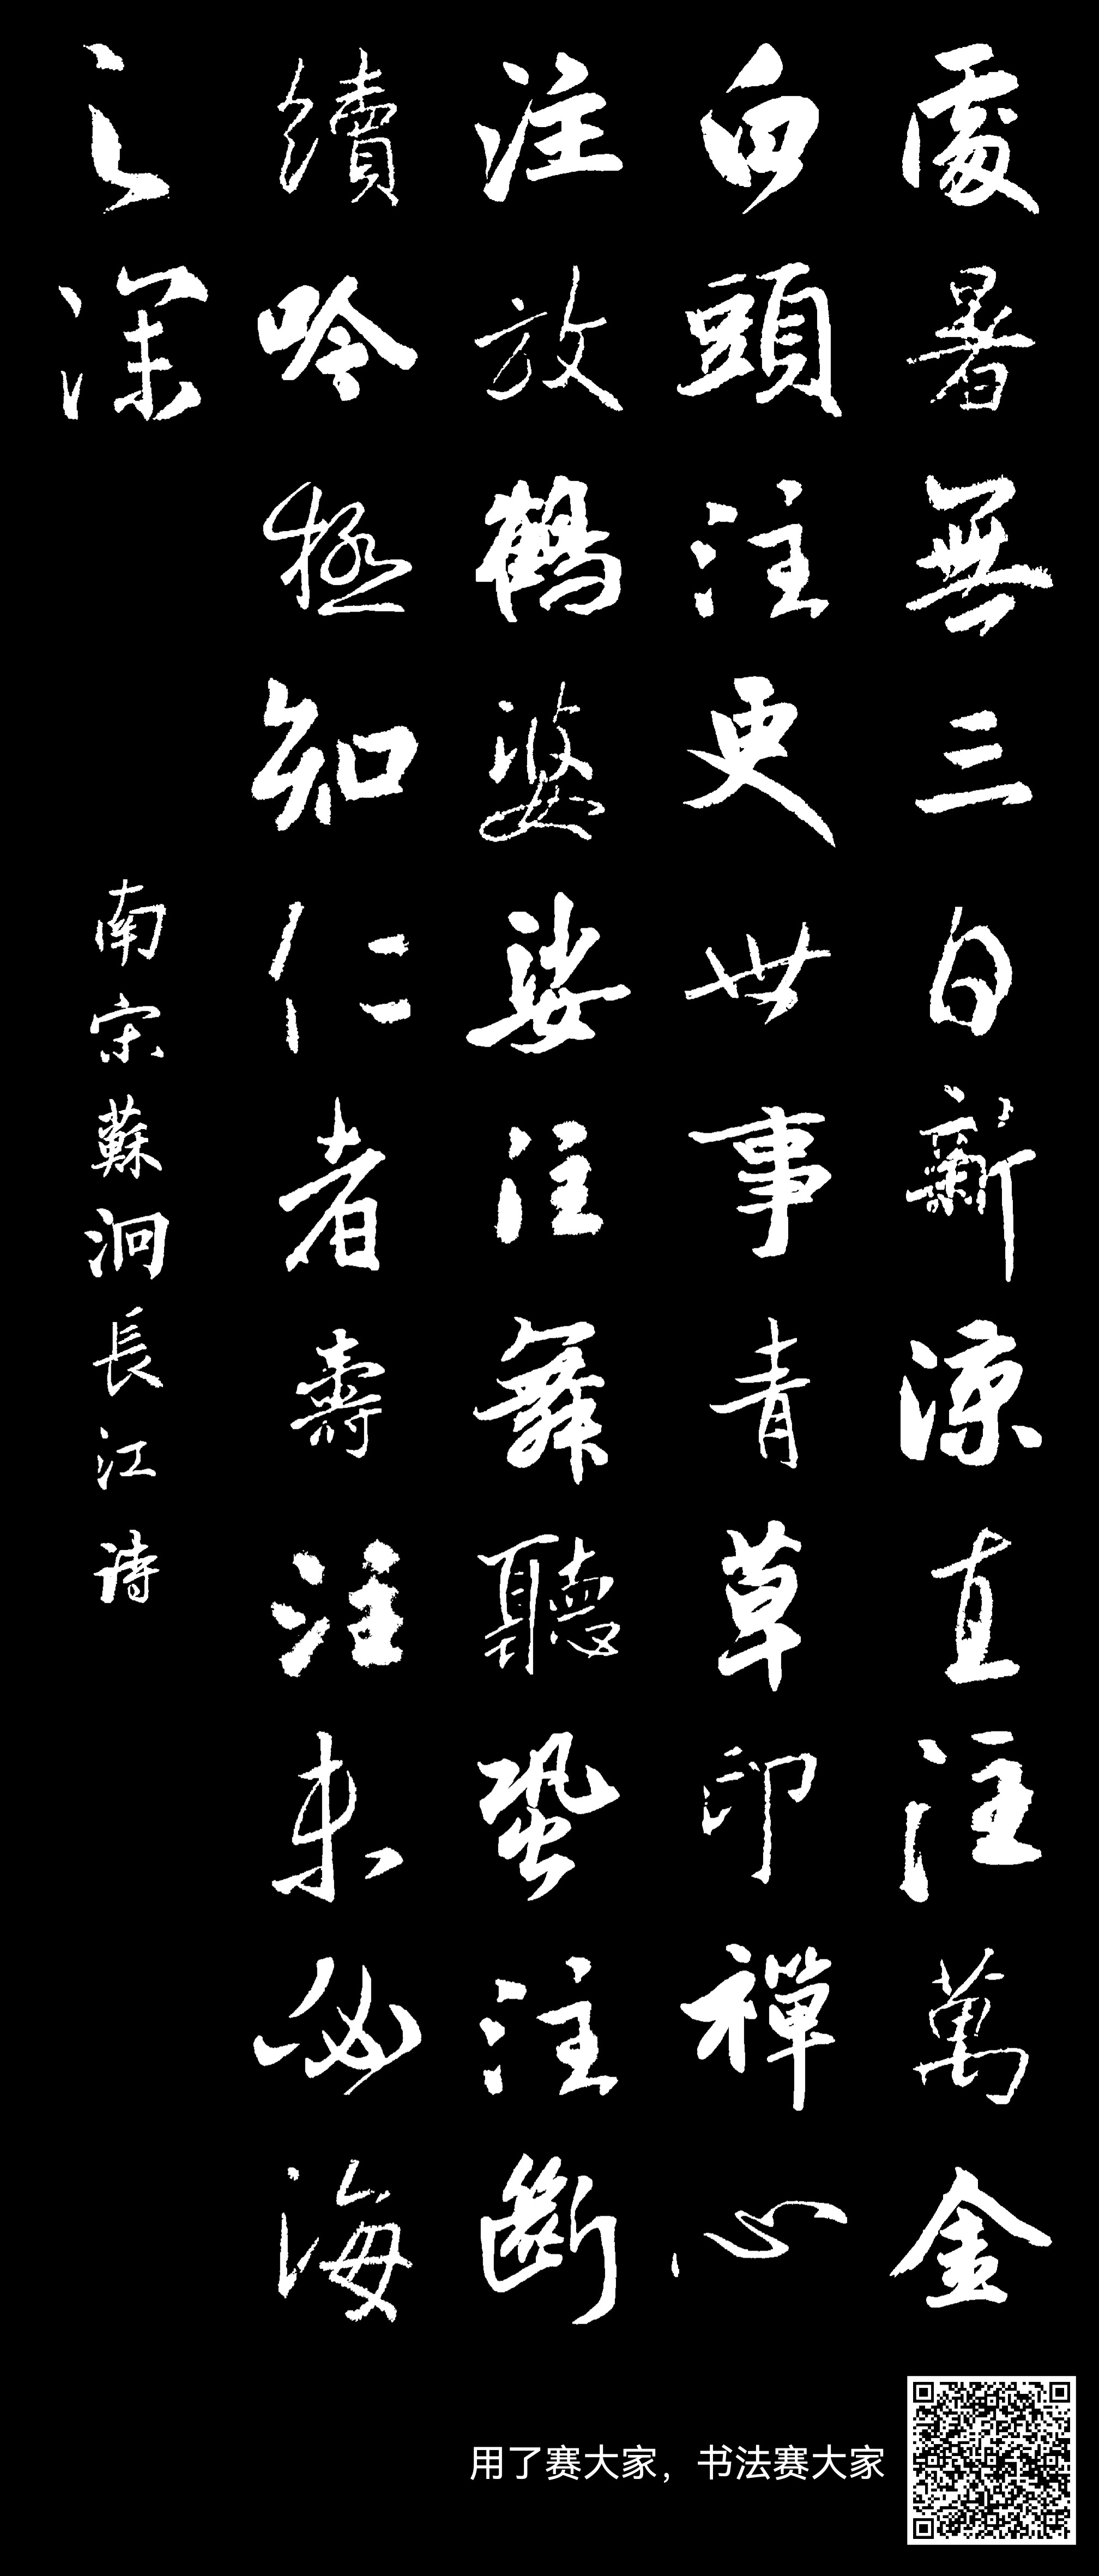 處暑無三日新凉直注萬金
白頭注更世事青草印禪心
注放鶴婆娑注舞聽蛩注斷
續吟極知仁者壽注未必海
之深
南宋蘇泂長江诗
用了赛大家，书法赛大家